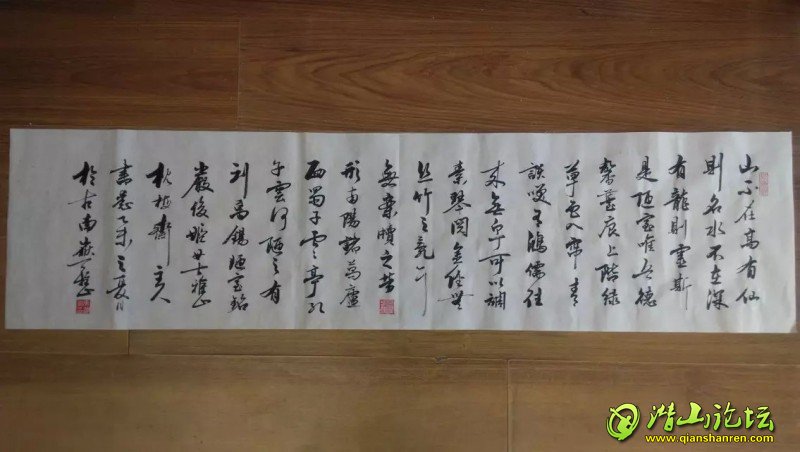 山不在高有仙
則名水不在深
有龍則靈斯
是陋室唯吾德
馨苔痕上階綠
草色入簾青
談笑有鴻儒往
來無白丁可以調
素琴閱金經無
絲竹之亂耳
無案牘之勞
形南陽諸葛廬
西蜀子雲亭孔
子雲何陋之有
刘禹锡陋室銘
嚴俊
齋主人
書於之夏月
於古南嶽
潜山论坛
www.qianshanren.com